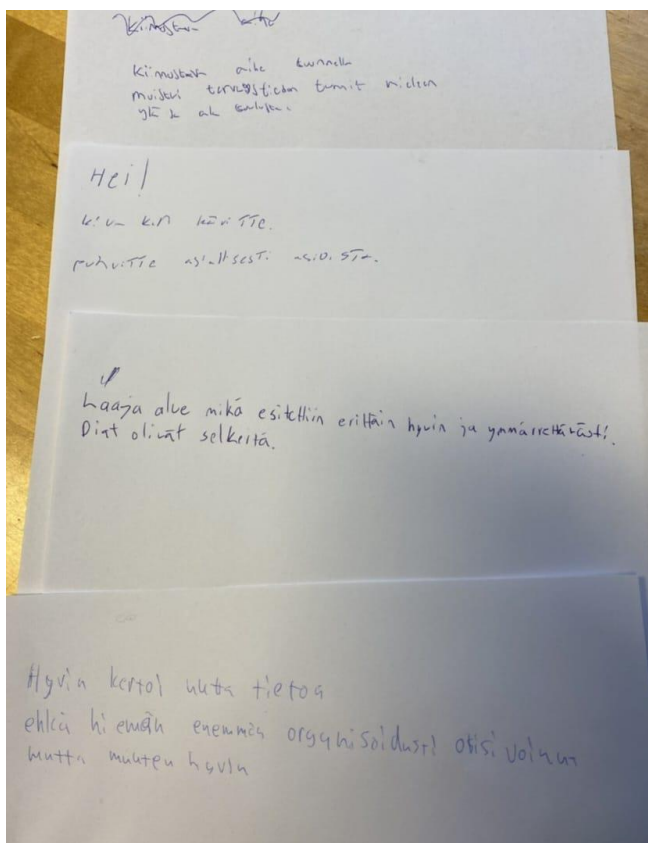 Kiinnostava aihe tunneilla
muistui
Hei!
kiva kun kävitte.
puhuitte asiallisesti asioista.
Laaja alue mikä esitettiin erittäin hyvin ja ymmärrettävästi.
Diat olivat selkeitä.
Hyvin kertoi uutta tietoa
ehkä hieman enemmän organisoidusti olisi voinut
mutta muuten hyvin